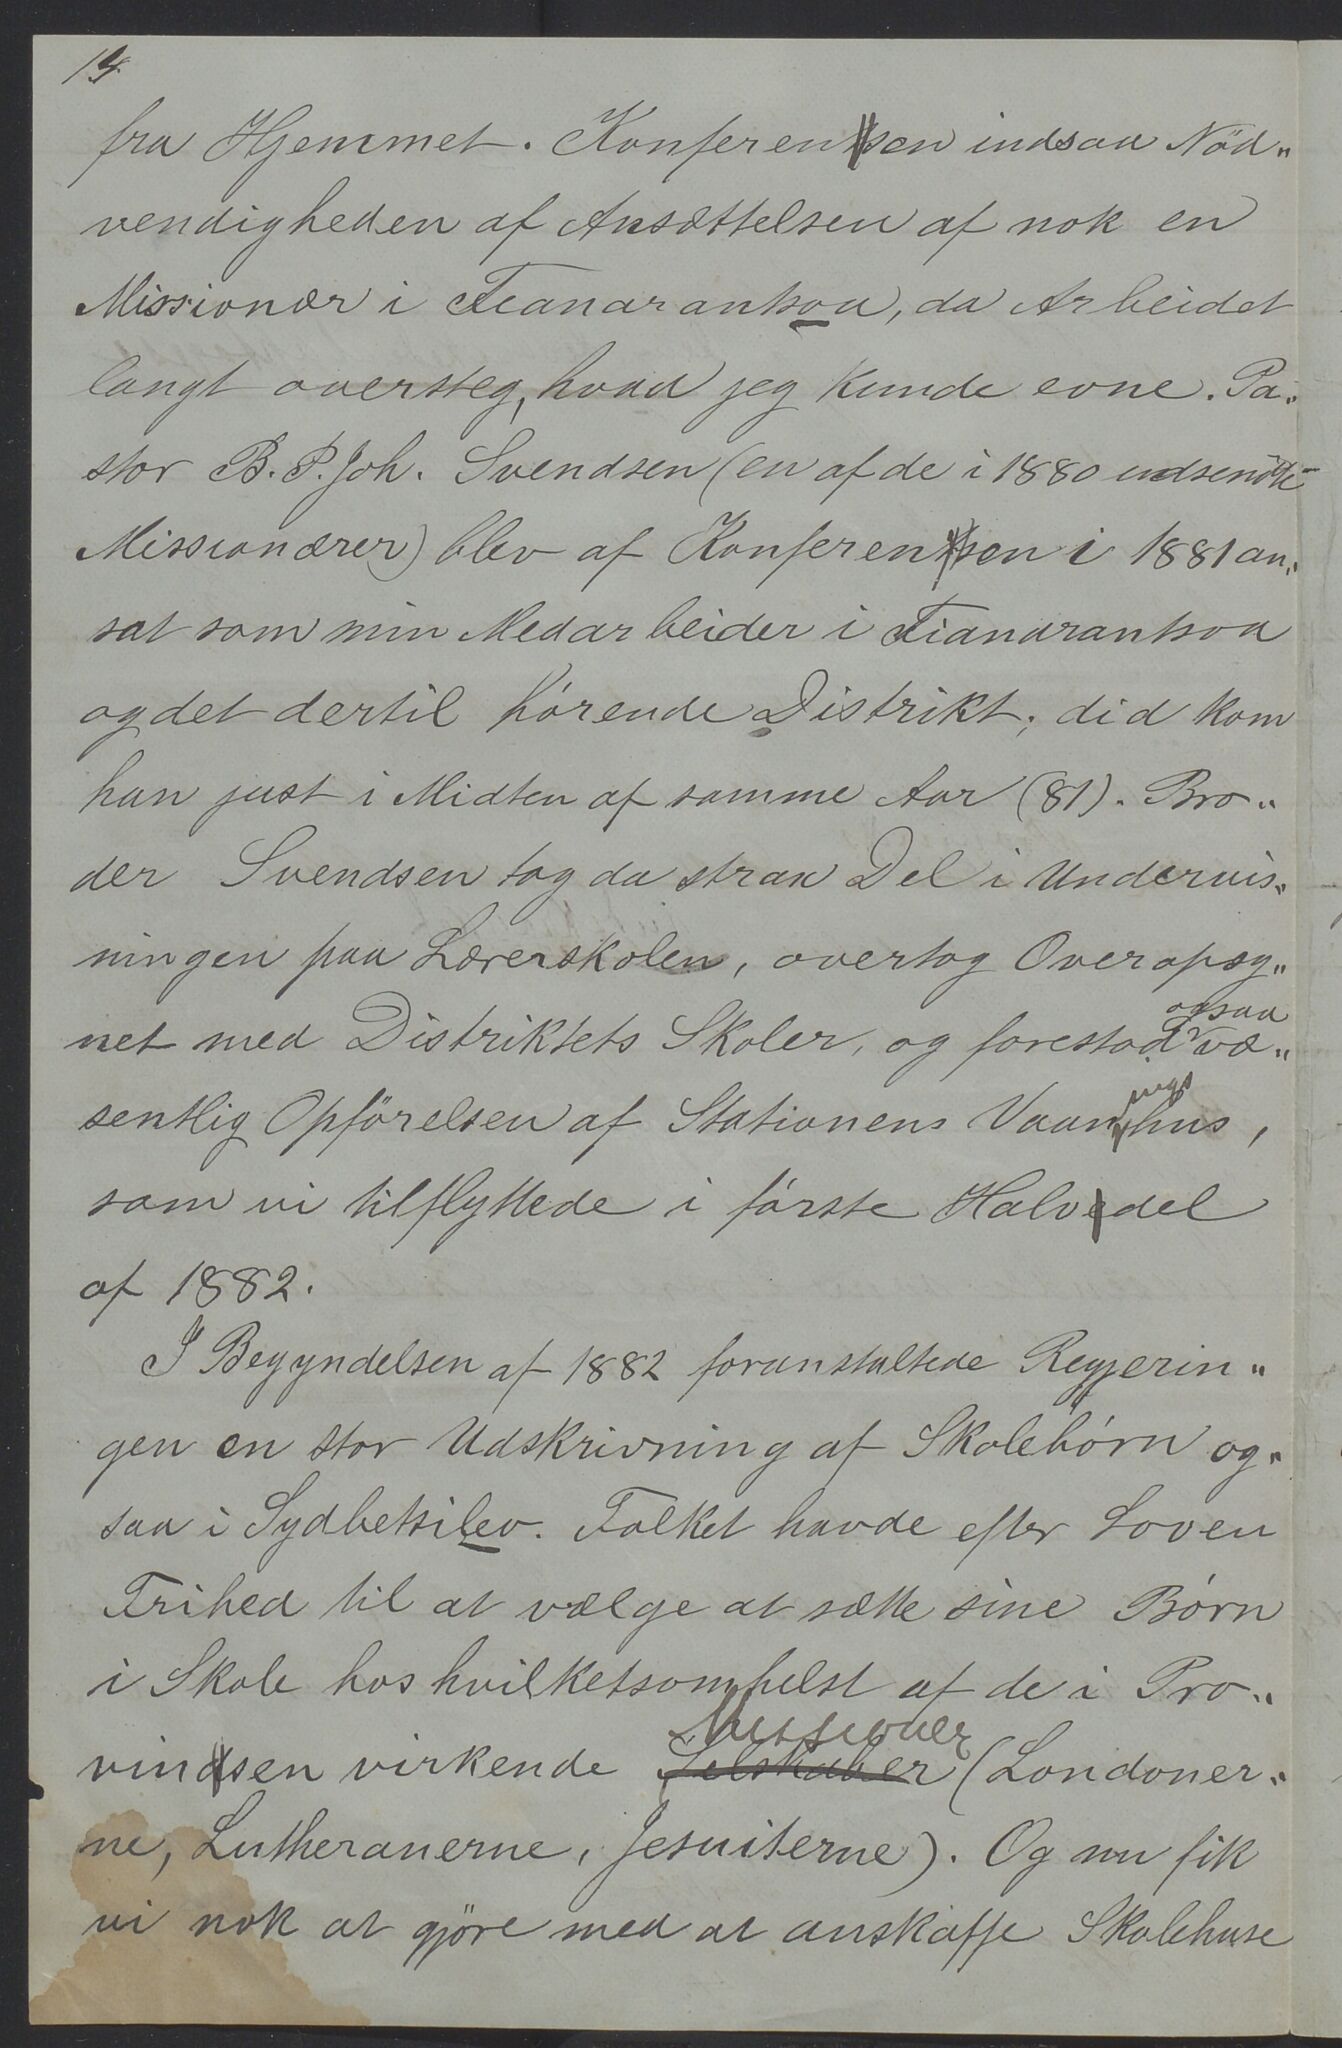 14.
fra Hjemmet. Konferensen indsaa Nød„
vendigheden af Ansættelsen af nok en
Missionær i Fianarantsoa, da Arbeidet
langt oversteg, hvad jeg kunde evne. Pa„
stor B. P. Joh. Svendsen (en af de i 1880 udsendte
Missionærer) blev af Konferensen i 1881 an„
sat som min Medarbeider i Fianarantsoa
og det dertil hørende Distrikt; did kom
han just i Midten af samme Aar (81). Bro„
der Svendsen tog da strax Del i Undervis„
ningen paa Lærerskolen, overtog Overopsy„
net med Distriktets Skoler, og forestod ogsaa væ„
sentlig Opførelsen af Stationens Vaaningshus,
som vi tilflyttede i første Halvdel
af 1882.
I Begyndelsen af 1882 foranstaltede Regjerin„
gen en stor Udskrivning af Skolebørn og„
saa i Sydbetsileo. Folket havde efter Loven
Frihed til at vælge at sætte sine Børn
i Skole hos hvilketsomhelst af de i Pro„
vinsen virkende Selskaber Missioner (Londoner„
ne, Lutheranerne, Jesuiterne). Og nu fik
vi nok at gjöre med at anskaffe Skolehuse